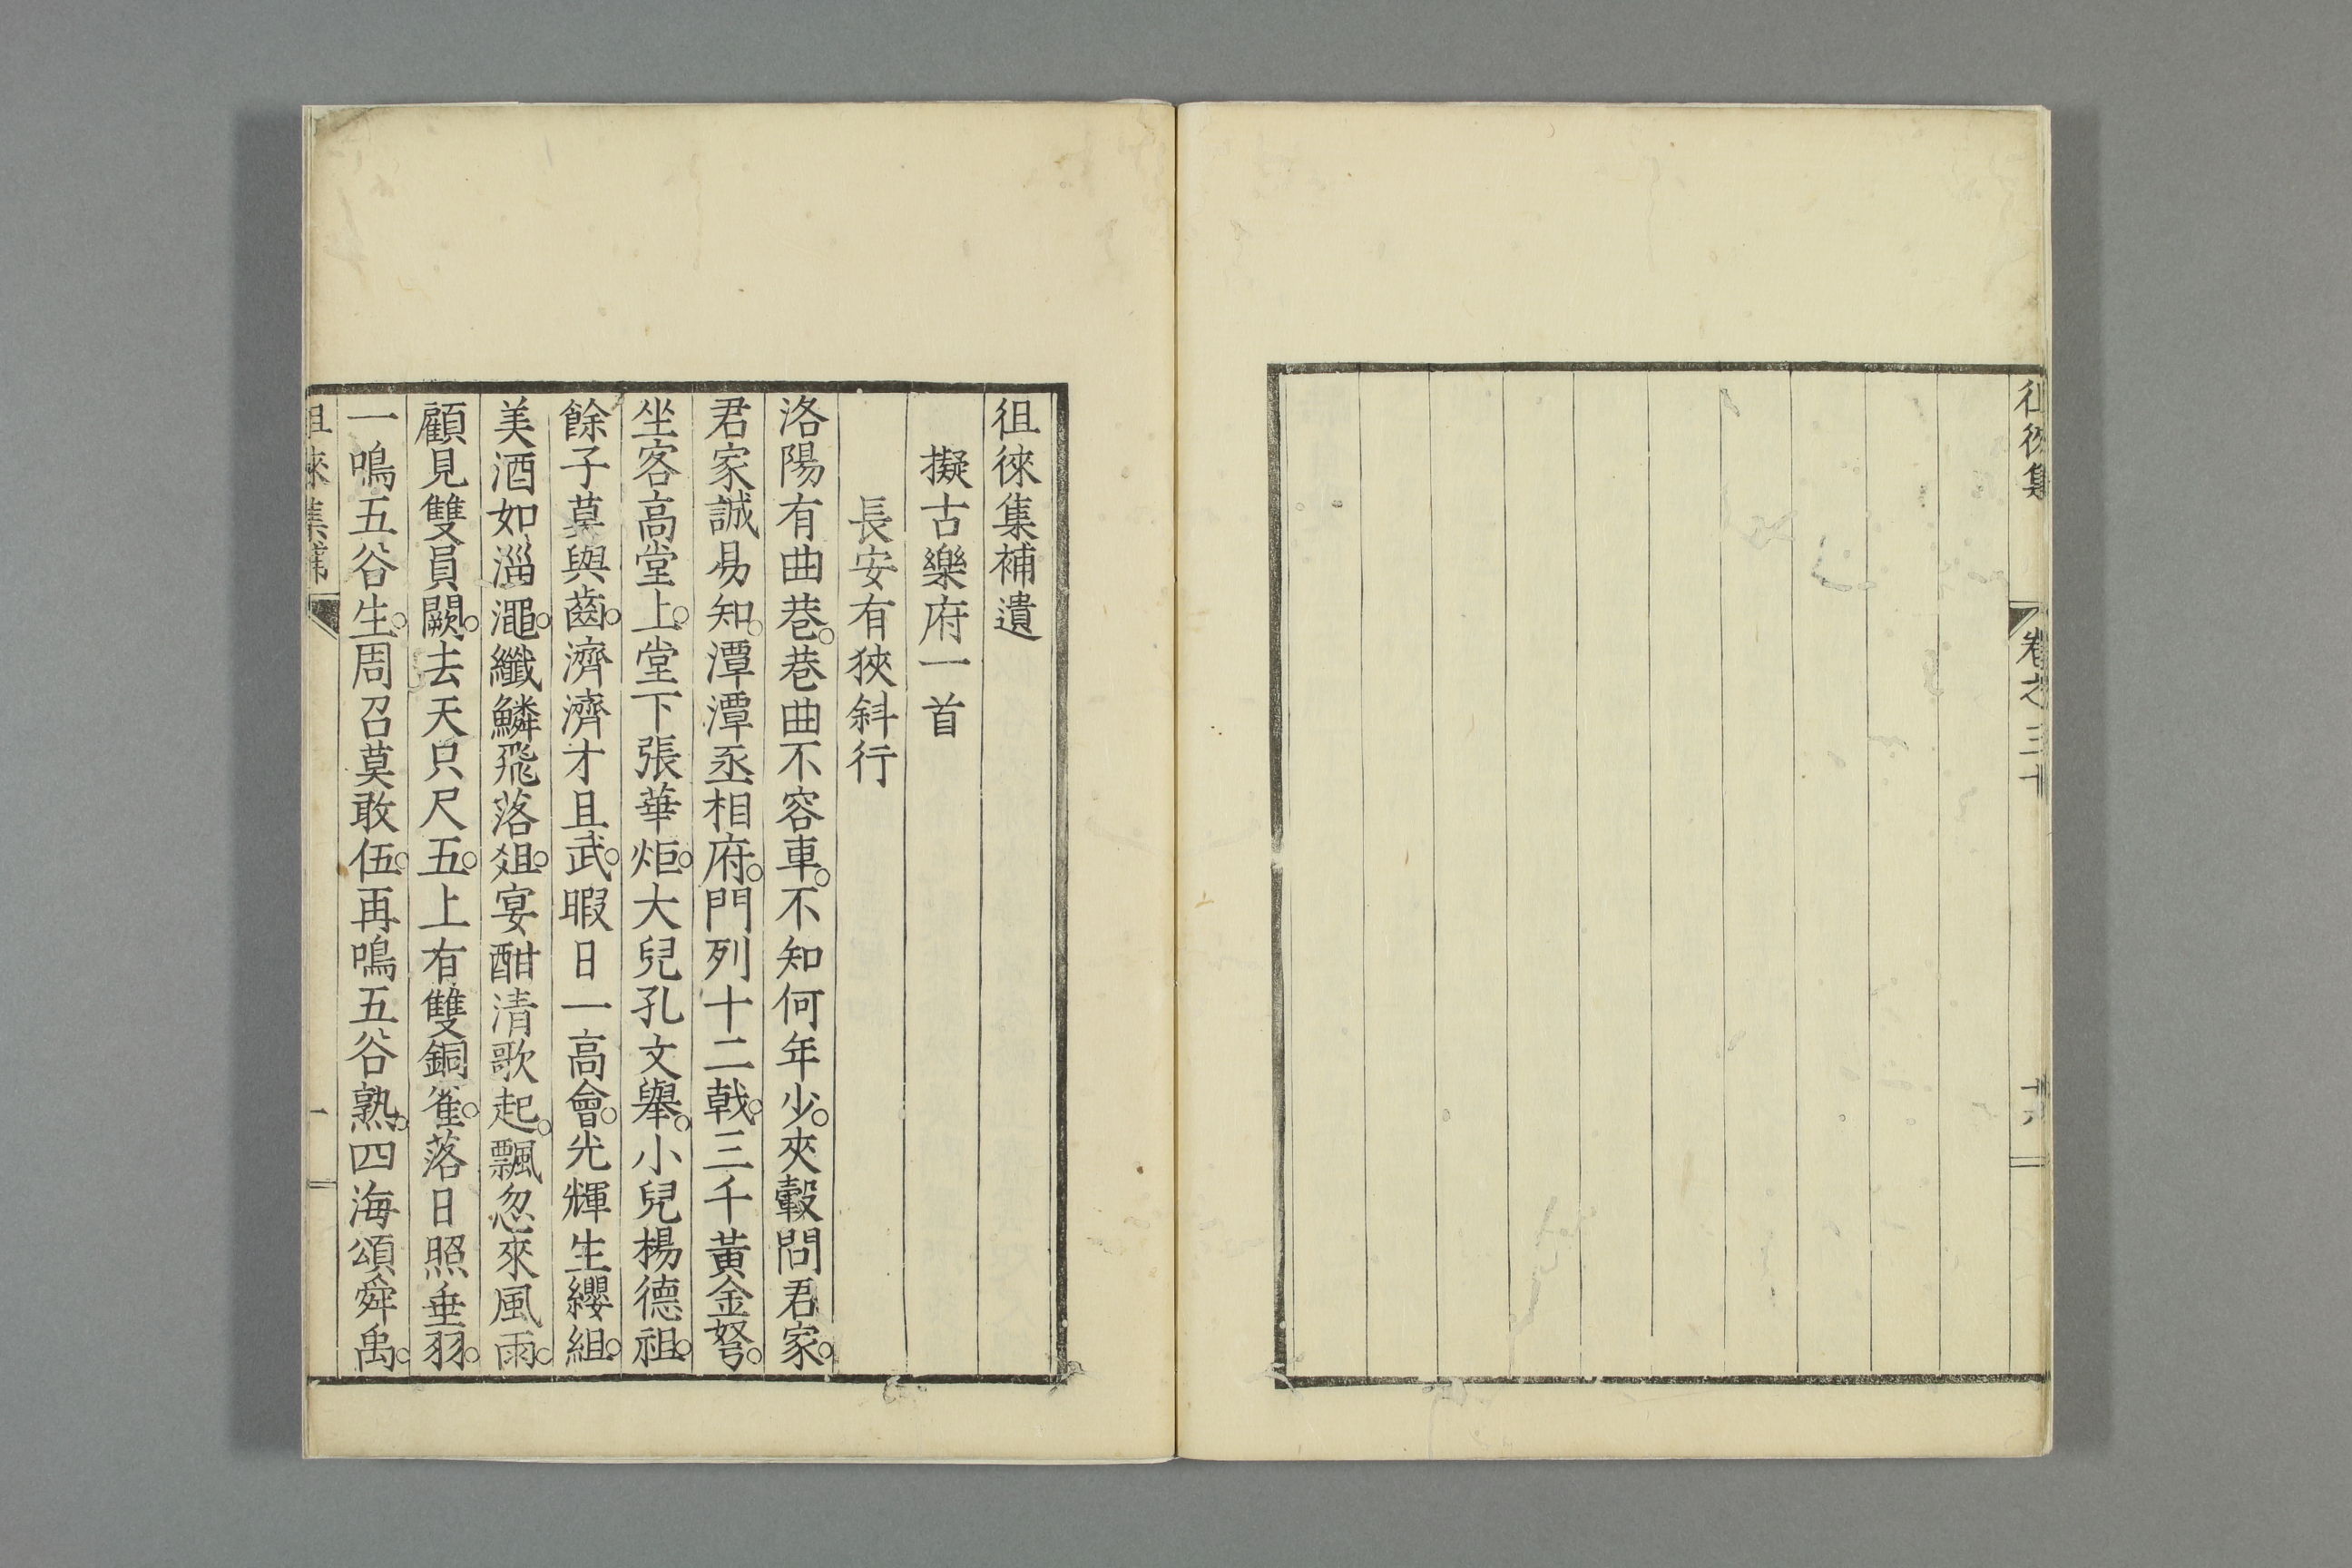 徂徠集
卷之三十
十六
徂徠集補遺
擬古樂府一首
長安有狹斜行
洛陽有曲巷。巷曲不容車。不知何年少。夾轂問君家。
君家誠易知。潭潭丞相府。門列十二戟。三千黃金弩。
坐客高堂上。堂下張華炬。大兒孔文舉。小兒楊德祖。
餘子莫與齒。濟濟才且武。暇日一高會。光輝生纓組。
美酒如淄澠。纖鱗飛落俎。宴酣清歌起。飄忽來風雨。
顧見雙員闕。去天只尺五。上有雙銅雀。落日照垂羽。
一鳴五谷生。周召莫敢伍。再鳴五谷熟。四海頌舜禹。
徂徠集補
一